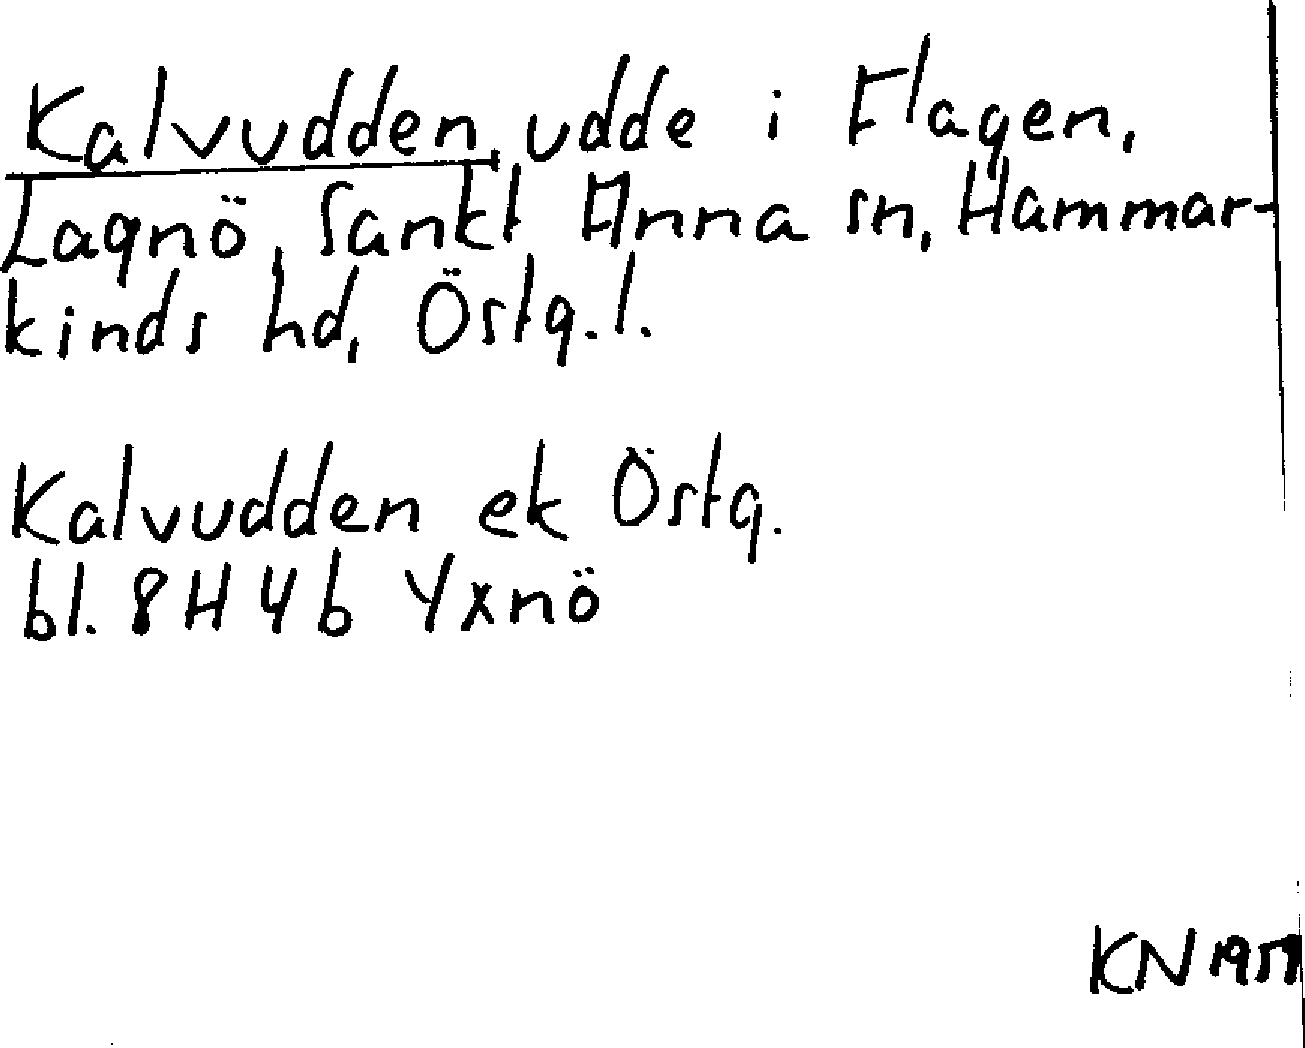 Kalvudden, udde i Flagen,
Lagnö, Sankt Anna sn, Hammar-
kinds hd, Östg. l.
Kalvudden ek Östg.
bl. 8H4b Yxnö
KN